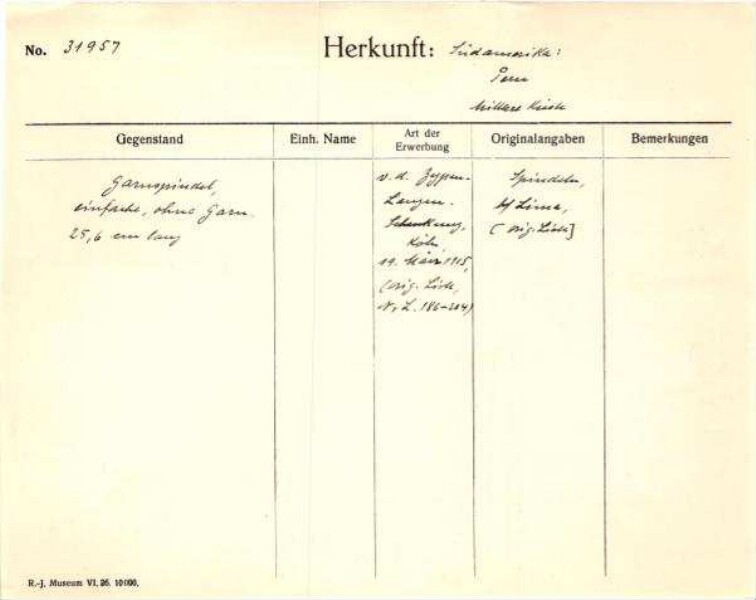 No. 31957
Herkunft: Südamerika:
Peru
Mittlere Küste
Gegenstand
Einh. Name
Art der
Erwerbung
Originalangaben
Bemerkungen
Garnspindel,
einfache, ohne Garn.
25,6 cm lang
v. d. Zypen-
Langen-
Schenkung,
Köln,
19. März 1915,
(orig. Liste,
Nr. L. 186-204)
Spindeln,
bf Lima,
[orig. Liste]
R.-J. Museum VI. 26. 10000.